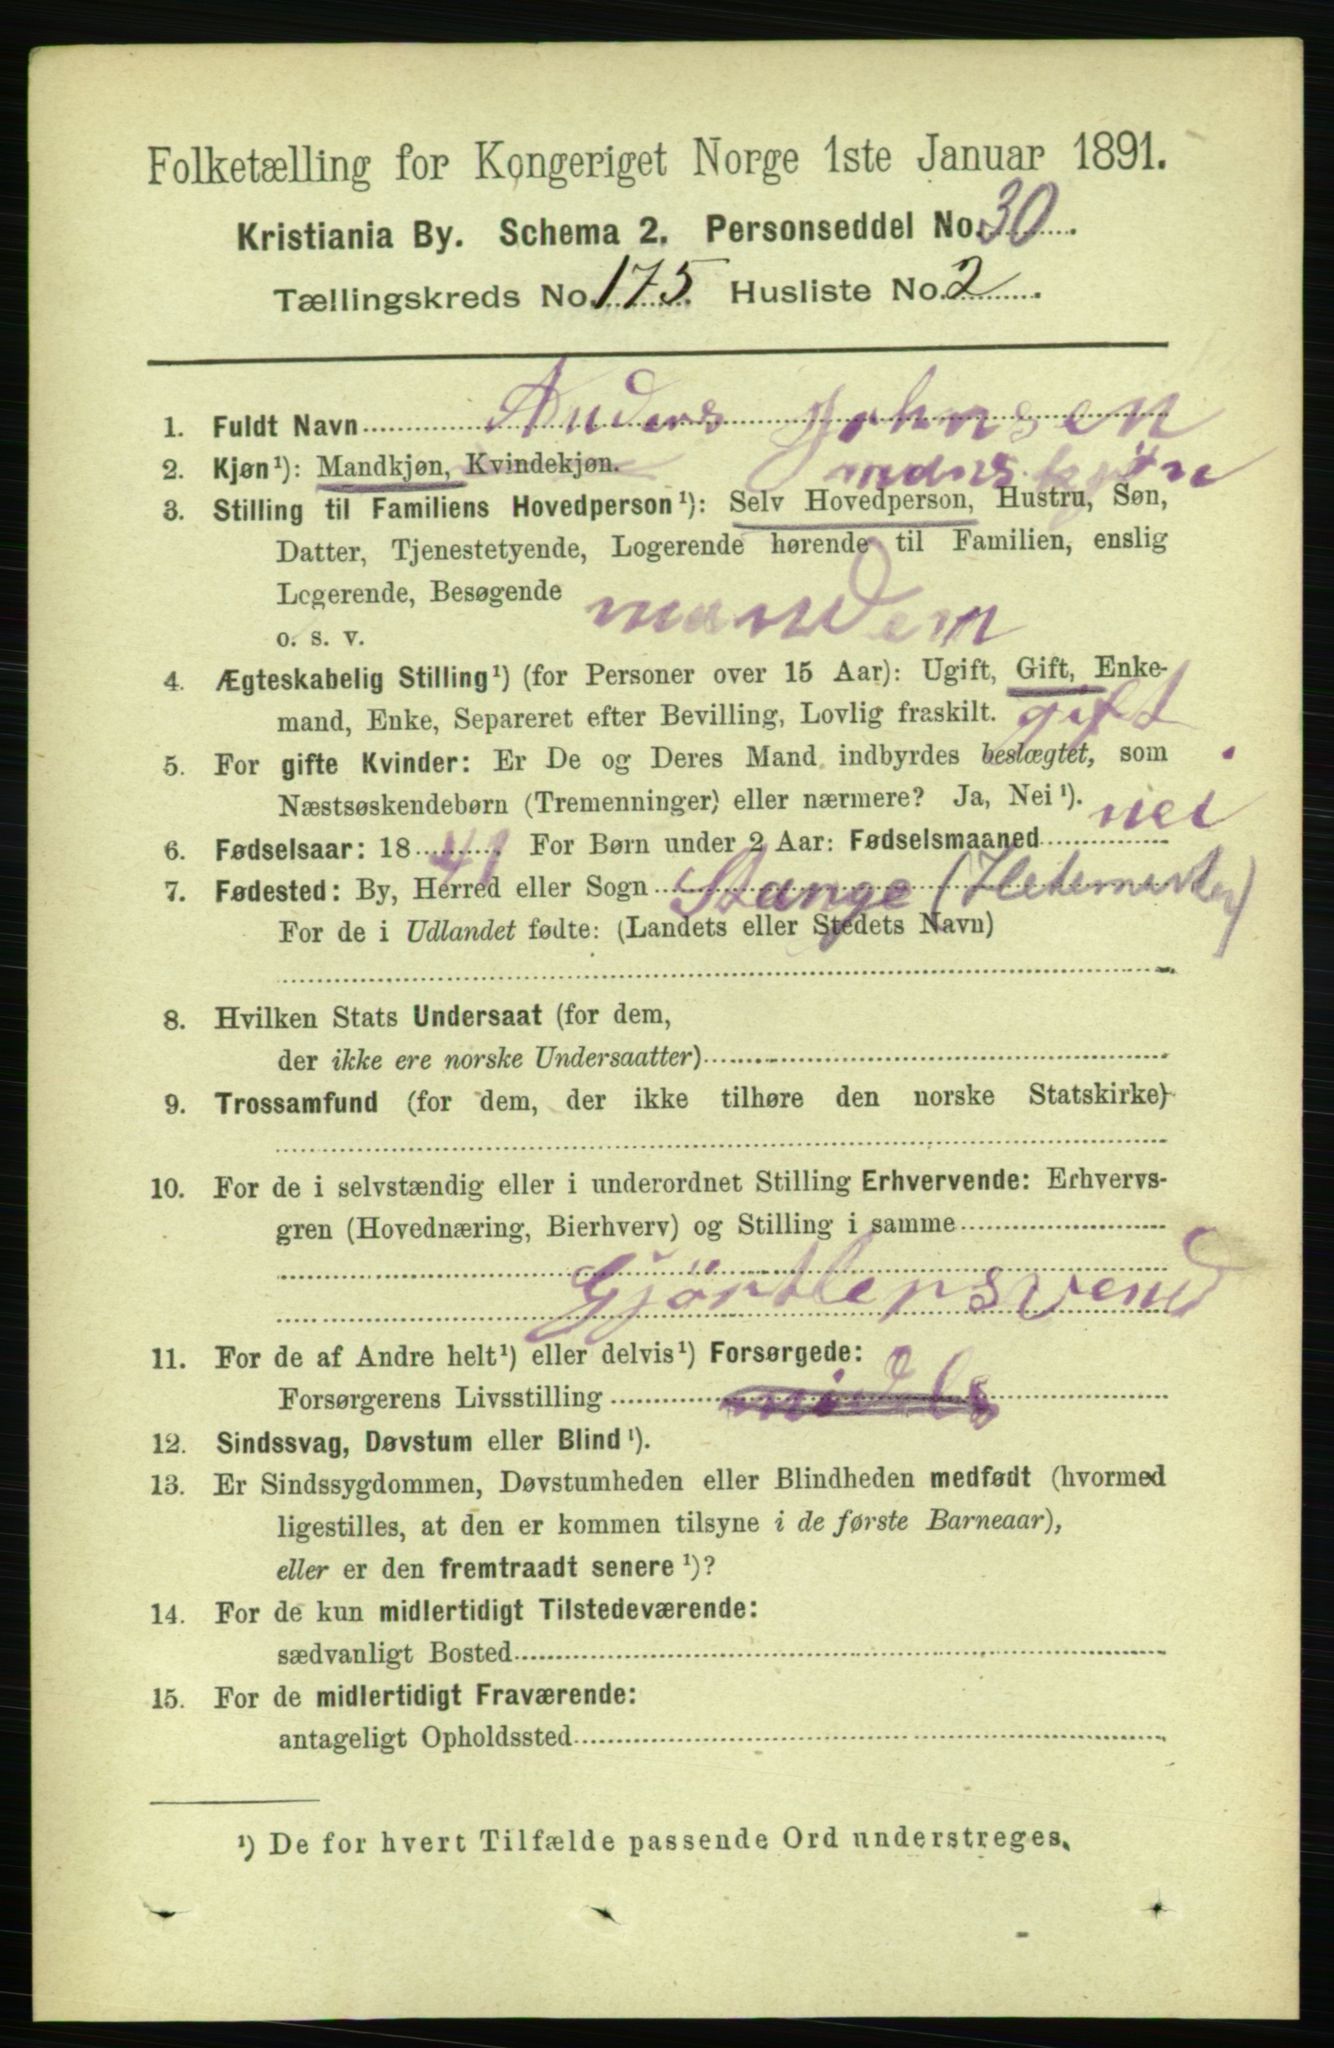 Folketælling for Kongeriget Norge 1ste Januar 1891.
Kristiania By. Schema 2. Personseddel No. 30.
Tællingskreds No. 175. Husliste No. 2.
1. Fuldt Navn Anders Johnsen
2. Kjøn¹): Mandkjøn, Kvindekjøn.
3. Stilling til Familiens Hovedperson¹): Selv Hovedperson, Hustru, Søn,
Datter, Tjenestetyende, Logerende hørende til Familien, enslig
Logerende, Besøgende manden
o. s. v.
4. Ægteskabelig Stilling¹) (for Personer over 15 Aar): Ugift, Gift, Enke-
mand, Enke, Separeret efter Bevilling, Lovlig fraskilt. gift
5. For gifte Kvinder: Er De og Deres Mand indbyrdes beslægtet, som
Næstsøskendebørn (Tremenninger) eller nærmere? Ja, Nei¹). nei
6. Fødselsaar: 1841. For Børn under 2 Aar: Fødselsmaaned
7. Fødested: By, Herred eller Sogn Stange (Hedemarken)
For de i Udlandet fødte: (Landets eller Stedets Navn)
8. Hvilken Stats Undersaat (for dem,
der ikke ere norske Undersaatter)
9. Trossamfund (for dem, der ikke tilhøre den norske Statskirke)
10. For de i selvstændig eller i underordnet Stilling Erhvervende: Erhvervs-
gren (Hovednæring, Bierhverv) og Stilling i samme
Gjörtlersvend
11. For de af Andre helt¹) eller delvis¹) Forsørgede:
Forsørgerens Livsstilling
12. Sindssvag, Døvstum eller Blind¹).
13. Er Sindssygdommen, Døvstumheden eller Blindheden medfødt (hvormed
ligestilles, at den er kommen tilsyne i de første Barneaar),
eller er den fremtraadt senere¹)?
14. For de kun midlertidigt Tilstedeværende:
sædvanligt Bosted
15. For de midlertidigt Fraværende:
antageligt Opholdssted
¹) De for hvert Tilfælde passende Ord understreges.